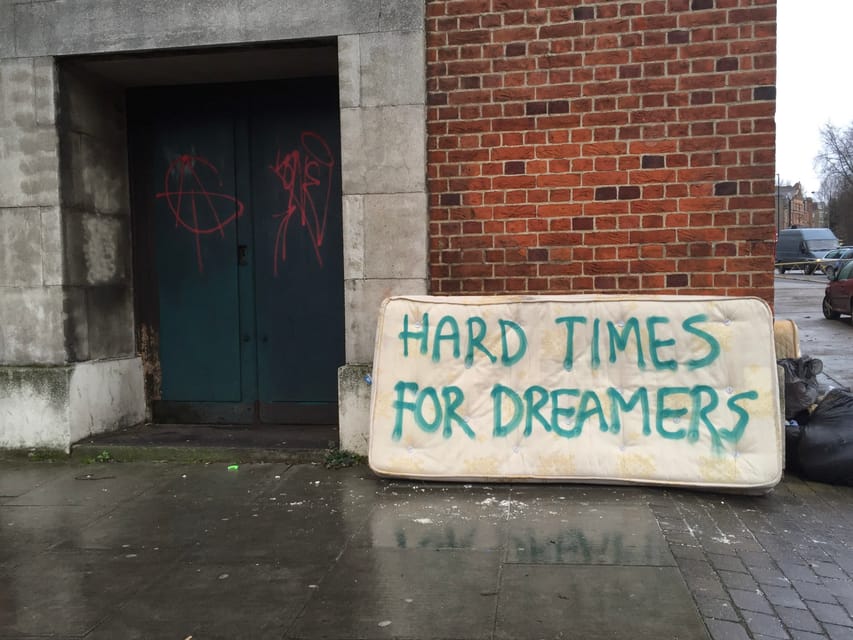 HARD TIMES
FOR DREAMERS